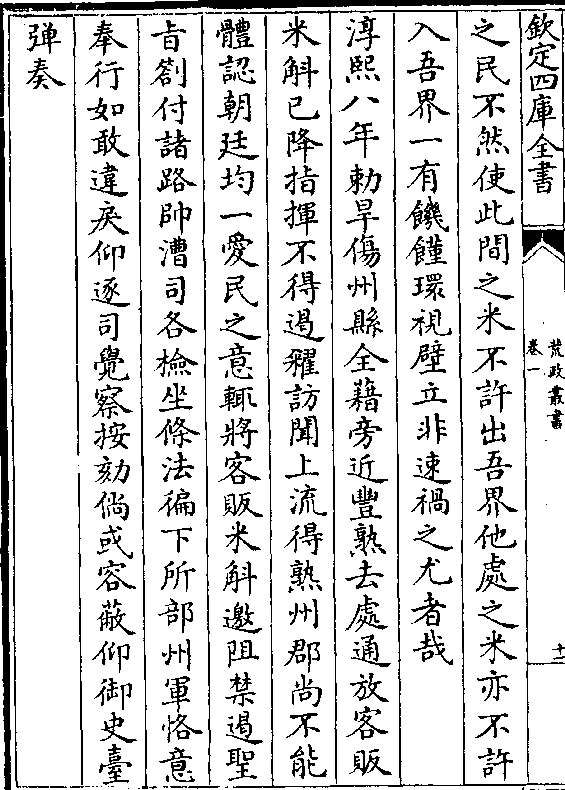 欽定四庫全書
荒政叢書
卷一
十二
之民不然使此間之米不許出吾界他處之米亦不許
入吾界一有饑饉環視壁立非速禍之尤者哉
淳熙八年勅旱傷州縣全藉旁近豐熟去處通放客販
米斛已降指揮不得遏糴訪聞上流得熟州郡尚不能
體認朝廷均一愛民之意輒將客販米斛邀阻禁遏聖
旨劄付諸路帥漕司各檢坐條法徧下所部州軍恪意
奉行如敢違戾仰逐司覺察按劾倘或容蔽仰御史臺
弹奏